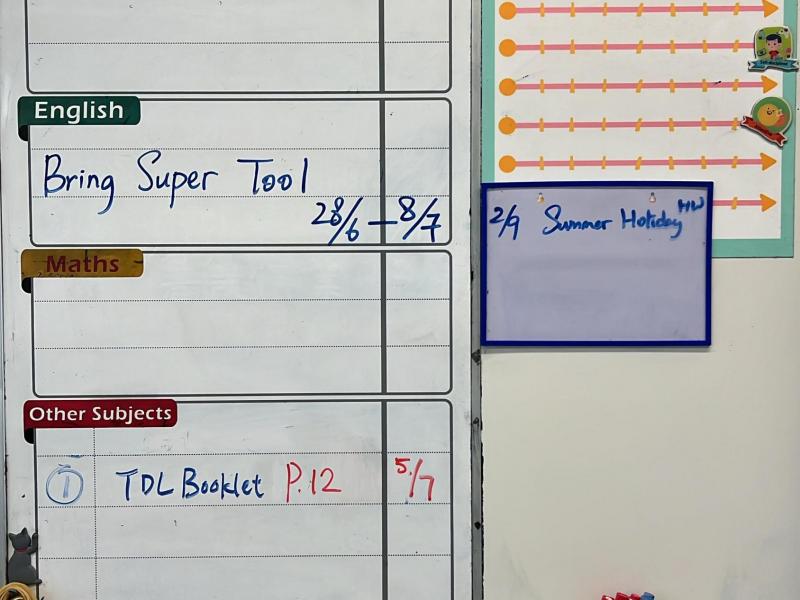 English
Bring Super Tool
28/6 — 8/7
Maths
Other Subjects
① TDL Booklet P.12 5/7
2/9 Summer Holiday HW